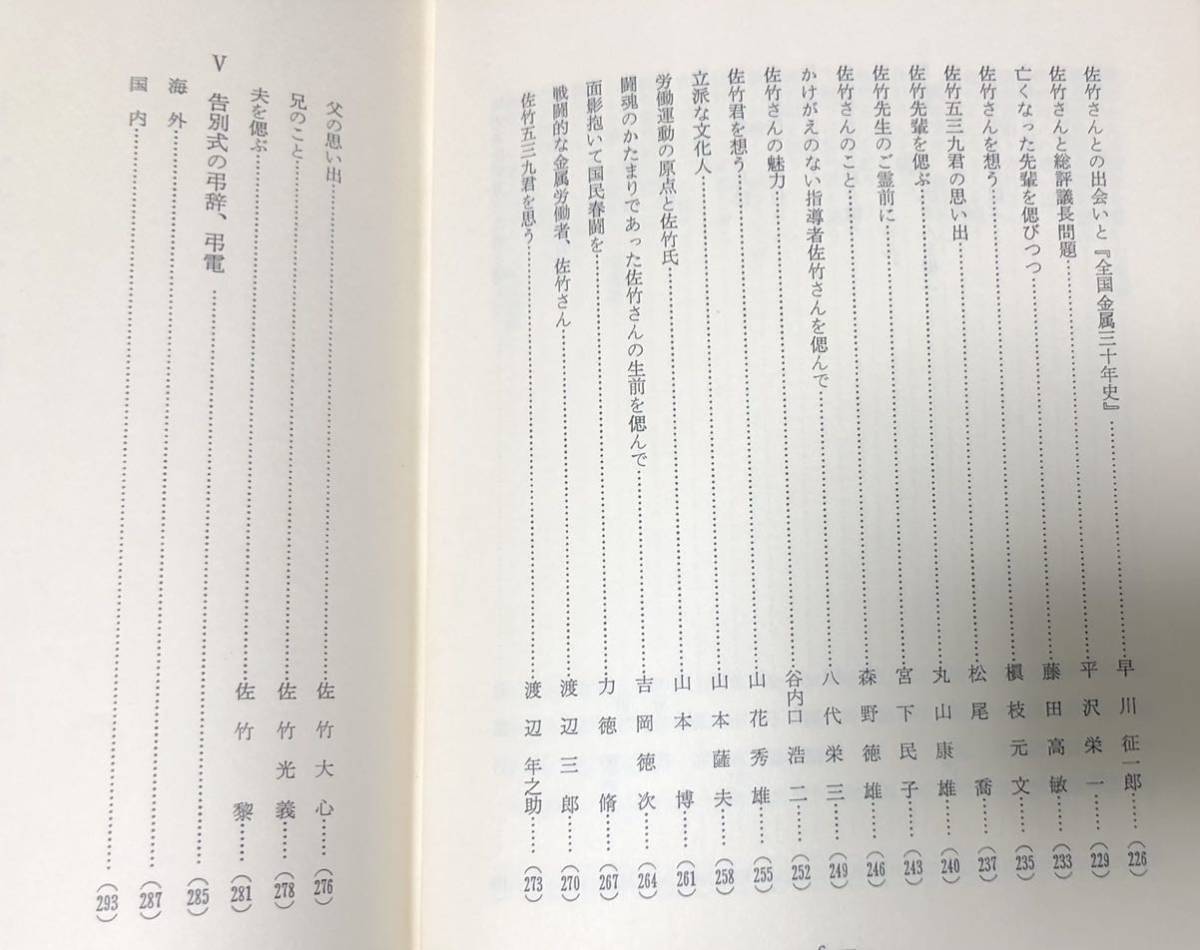 佐竹さんとの出会いと『全国金属三十年史』……早川征一郎……（226）
佐竹さんと総評議長問題……平沢栄一……（229）
亡くなった先輩を偲びつつ……藤田高敏……（233）
佐竹さんを想う……槇枝元文……（235）
佐竹五三九君の思い出……松尾喬……（237）
佐竹先輩を偲ぶ……丸山康雄……（240）
佐竹先生のご霊前に……宮下民子……（243）
佐竹さんのこと……森野徳雄……（246）
かけがえのない指導者佐竹さんを偲んで……八代栄三……（249）
佐竹さんの魅力……谷内口浩二……（252）
佐竹君を想う……山花秀雄……（255）
立派な文化人……山本薩夫……（258）
労働運動の原点と佐竹氏……山本博……（261）
闘魂のかたまりであった佐竹さんの生前を偲んで……吉岡徳次……（264）
面影抱いて国民春闘を……力徳脩……（267）
戦闘的な金属労働者、佐竹さん……渡辺三郎……（270）
佐竹五三九君を思う……渡辺年之助……（273）
父の思い出……佐竹大心……（276）
兄のこと……佐竹光義……（278）
夫を偲ぶ……佐竹黎……（281）
V 告別式の弔辞、弔電……（285）
海外……（287）
国内……（293）